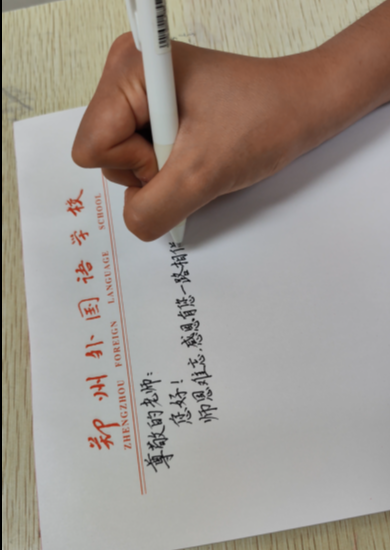 郑州外国语学校
ZHENGZHOU FOREIGN LANGUAGE SCHOOL
尊敬的老师：
您好！
师恩难忘，感恩有您一路相伴